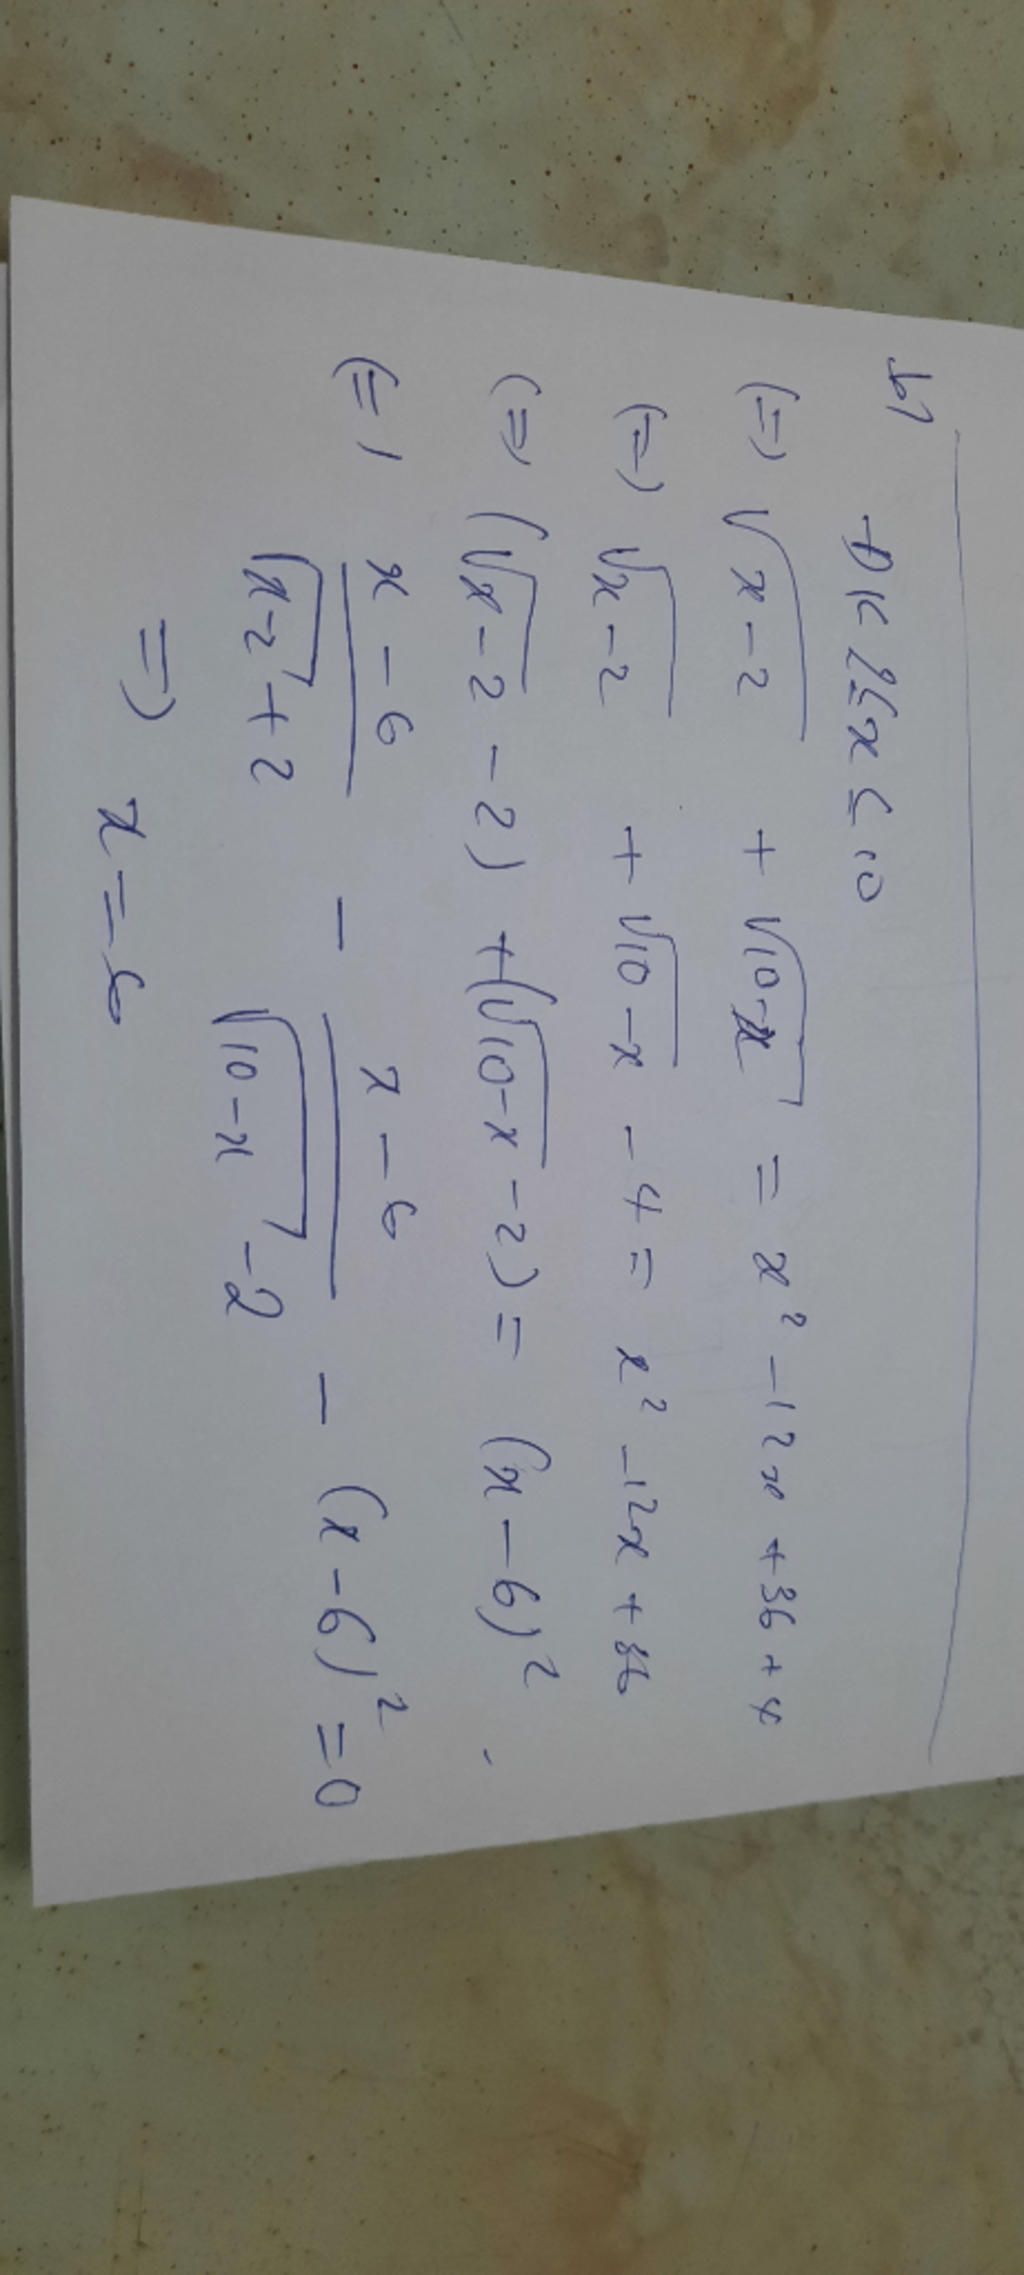 b)
ĐK 2 ≤ x ≤ 10
(=) √x-2 + √10-x = x² - 12x + 36 + 4
(=) √x-2 + √10-x - 4 = x² - 12x + 36
(=) (√x-2 - 2) + (√10-x - 2) = (x-6)²
(=) x-6 / √x-2 + 2 - x-6 / √10-x - 2 - (x-6)² = 0
=) x = 6